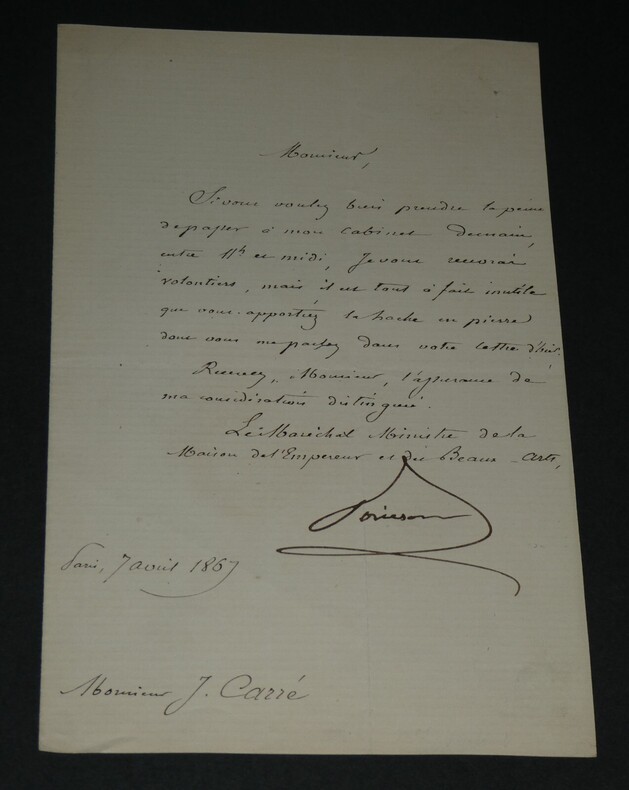 Monsieur,
Si vous voulez bien prendre la peine
de passer à mon Cabinet Demain,
entre 11h et midi, Je vous recevrai
volontiers, mais il est tout à fait inutile
que vous apportiez la hache en pierre
dont vous me parlez dans votre lettre d'hier.
Recevez, Monsieur, l'assurance de
ma considération distinguée.
Le Maréchal Ministre de la
Maison de l'Empereur et des Beaux-Arts,
Paris, 7 avril 1867
Monsieur J. Carré